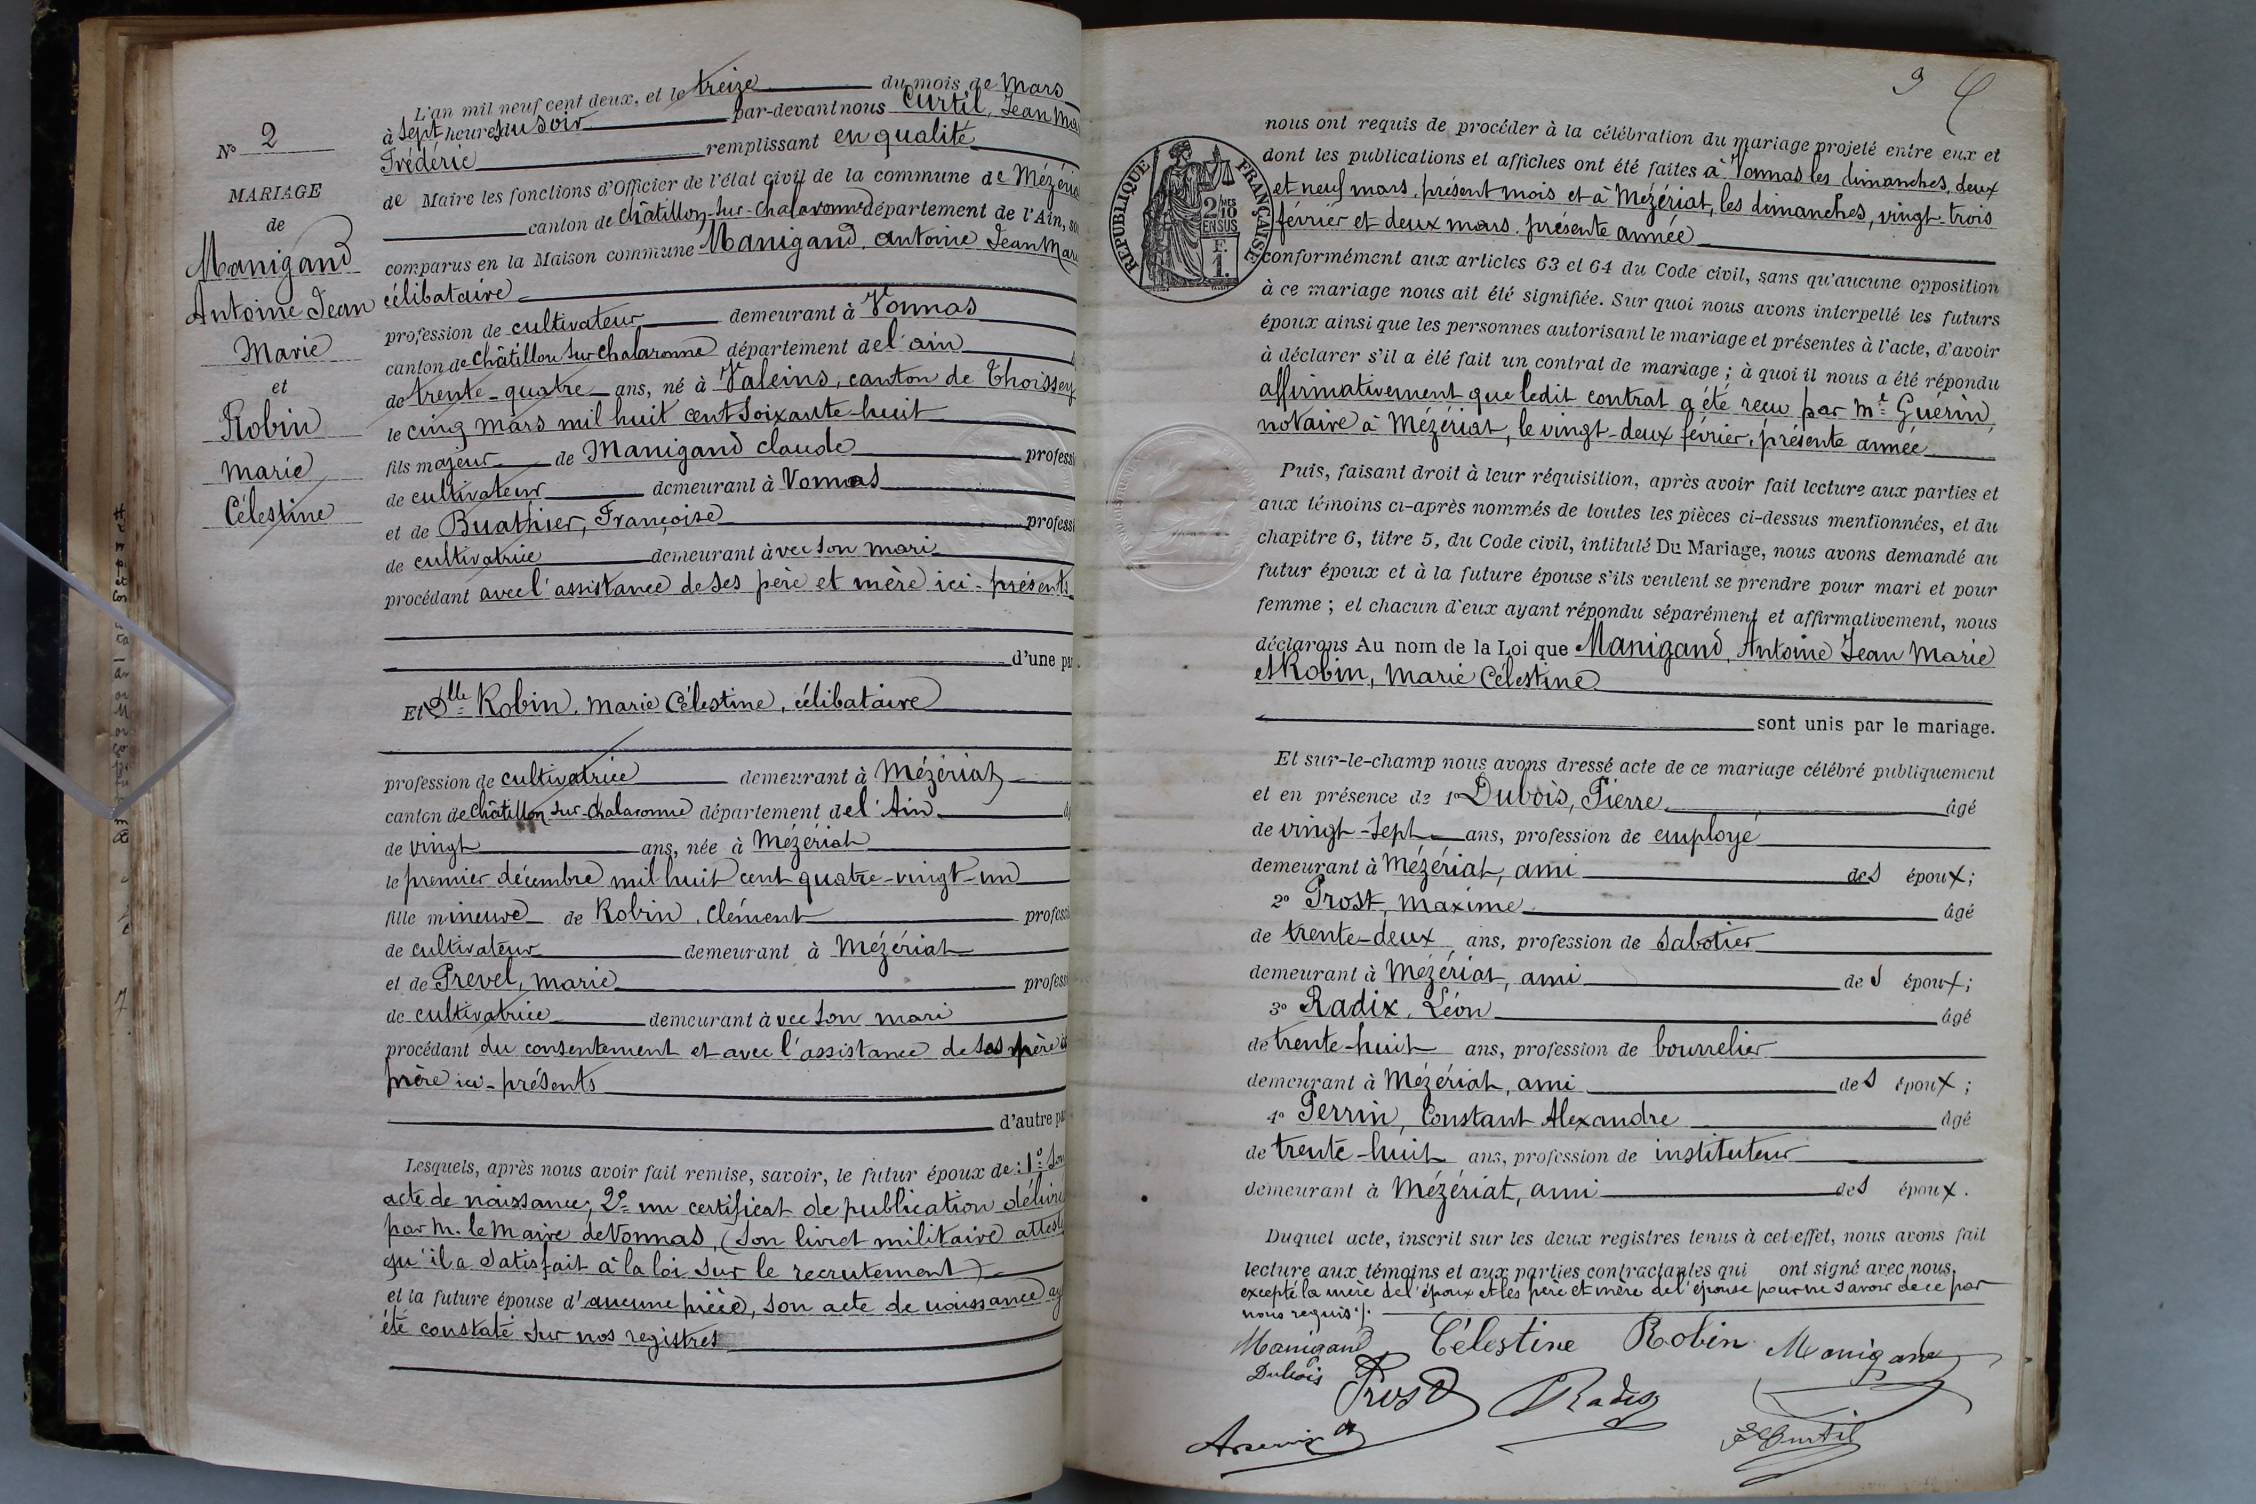 L'an mil neuf cent deux, et le treize du mois de Mars
à sept heures du soir par-devant nous Curtil, Jean
Frédéric remplissant en qualité
de Maire les fonctions d'Officier de l'état civil de la commune de
canton de Châtillon-sur-Chalaronne département de l'Ain,
comparus en la Maison commune Manigand, Antoine Jean
célibataire
profession de cultivateur demeurant à Vonnas
canton de Châtillon sur Chalaronne département de l'ain
de trente-quatre ans, né à Valeins, canton de Thoissey
le cinq mars mil huit cent soixante-huit
fils majeur de Manigand Claude
de cultivateur demeurant à Vonnas
et de Buathier, Françoise
de cultivatrice demeurant avec son mari
procédant avec l'assistance de ses père et mère ici-présents
d'une
Et Dlle Robin, Marie Célestine, célibataire
profession de cultivatrice demeurant à Mézériat
canton de Châtillon-sur-Chalaronne département de l'Ain
de vingt ans, née à Mézériat
le premier décembre mil huit cent quatre-vingt-un
fille mineure de Robin, Clément
de cultivateur demeurant à Mézériat
et de Prevel, Marie
de cultivatrice demeurant avec son mari
procédant du consentement et avec l'assistance de ses père
mère ici-présents
d'autre
Lesquels, après nous avoir fait remise, savoir, le futur époux de: 1º
acte de naissance; 2º un certificat de publication
par M. le Maire de Vonnas, (son livret militaire
qu'il a satisfait à la loi sur le recrutement)
et la future épouse d'aucune pièce, son acte de naissance
été constaté sur nos registres
No 2
MARIAGE
de
Manigand
Antoine Jean
Marie
et
Robin
Marie
Célestine
3
nous ont requis de procéder à la célébration du mariage projeté entre eux et
dont les publications et affiches ont été faites à Vonnas les dimanches, deux
et neuf mars, présent mois et à Mézériat, les dimanches, vingt-trois
février et deux mars, présente année
conformément aux articles 63 et 64 du Code civil, sans qu'aucune opposition
à ce mariage nous ait été signifiée. Sur quoi nous avons interpellé les futurs
époux ainsi que les personnes autorisant le mariage et présentes à l'acte, d'avoir
à déclarer s'il a été fait un contrat de mariage; à quoi il nous a été répondu
affirmativement que ledit contrat a été reçu par Me Guérin,
notaire à Mézériat, le vingt-deux février, présente année
Puis, faisant droit à leur réquisition, après avoir fait lecture aux parties et
aux témoins ci-après nommés de toutes les pièces ci-dessus mentionnées, et du
chapitre 6, titre 5, du Code civil, intitulé Du Mariage, nous avons demandé au
futur époux et à la future épouse s'ils veulent se prendre pour mari et pour
femme; et chacun d'eux ayant répondu séparément et affirmativement, nous
déclarons Au nom de la Loi que Manigand, Antoine Jean Marie
et Robin, Marie Célestine
sont unis par le mariage.
Et sur-le-champ nous avons dressé acte de ce mariage célébré publiquement
et en présence de 1º Dubois, Pierre âgé
de vingt-sept ans, profession de employé
demeurant à Mézériat, ami des époux;
2º Prost, Maxime âgé
de trente-deux ans, profession de sabotier
demeurant à Mézériat, ami des époux;
3º Radix, Léon âgé
de trente-huit ans, profession de bourrelier
demeurant à Mézériat, ami des époux;
4º Perrin, Constant Alexandre âgé
de trente-huit ans, profession de instituteur
demeurant à Mézériat, ami des époux.
Duquel acte, inscrit sur les deux registres tenus à cet effet, nous avons fait
lecture aux témoins et aux parties contractantes qui ont signé avec nous,
excepté la mère de l'époux et les père et mère de l'épouse pour ne savoir de ce par
nous requis.
Manigand Célestine Robin Manigand
Dubois Prost Radix
Curtil
RÉPUBLIQUE FRANÇAISE
2/10MES
EN SUS
F.
1.